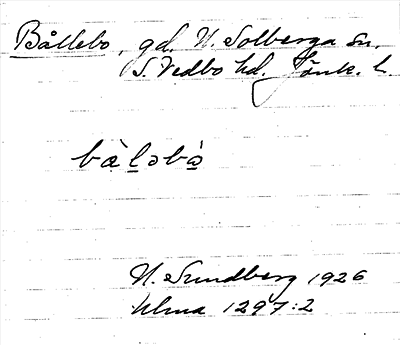 Bållebo, gd. N. Solberga sn.
S. Vedbo hd. Jönk. l.
bàl̲əbò̲
N. Sundberg 1926
Ulma 1297:2